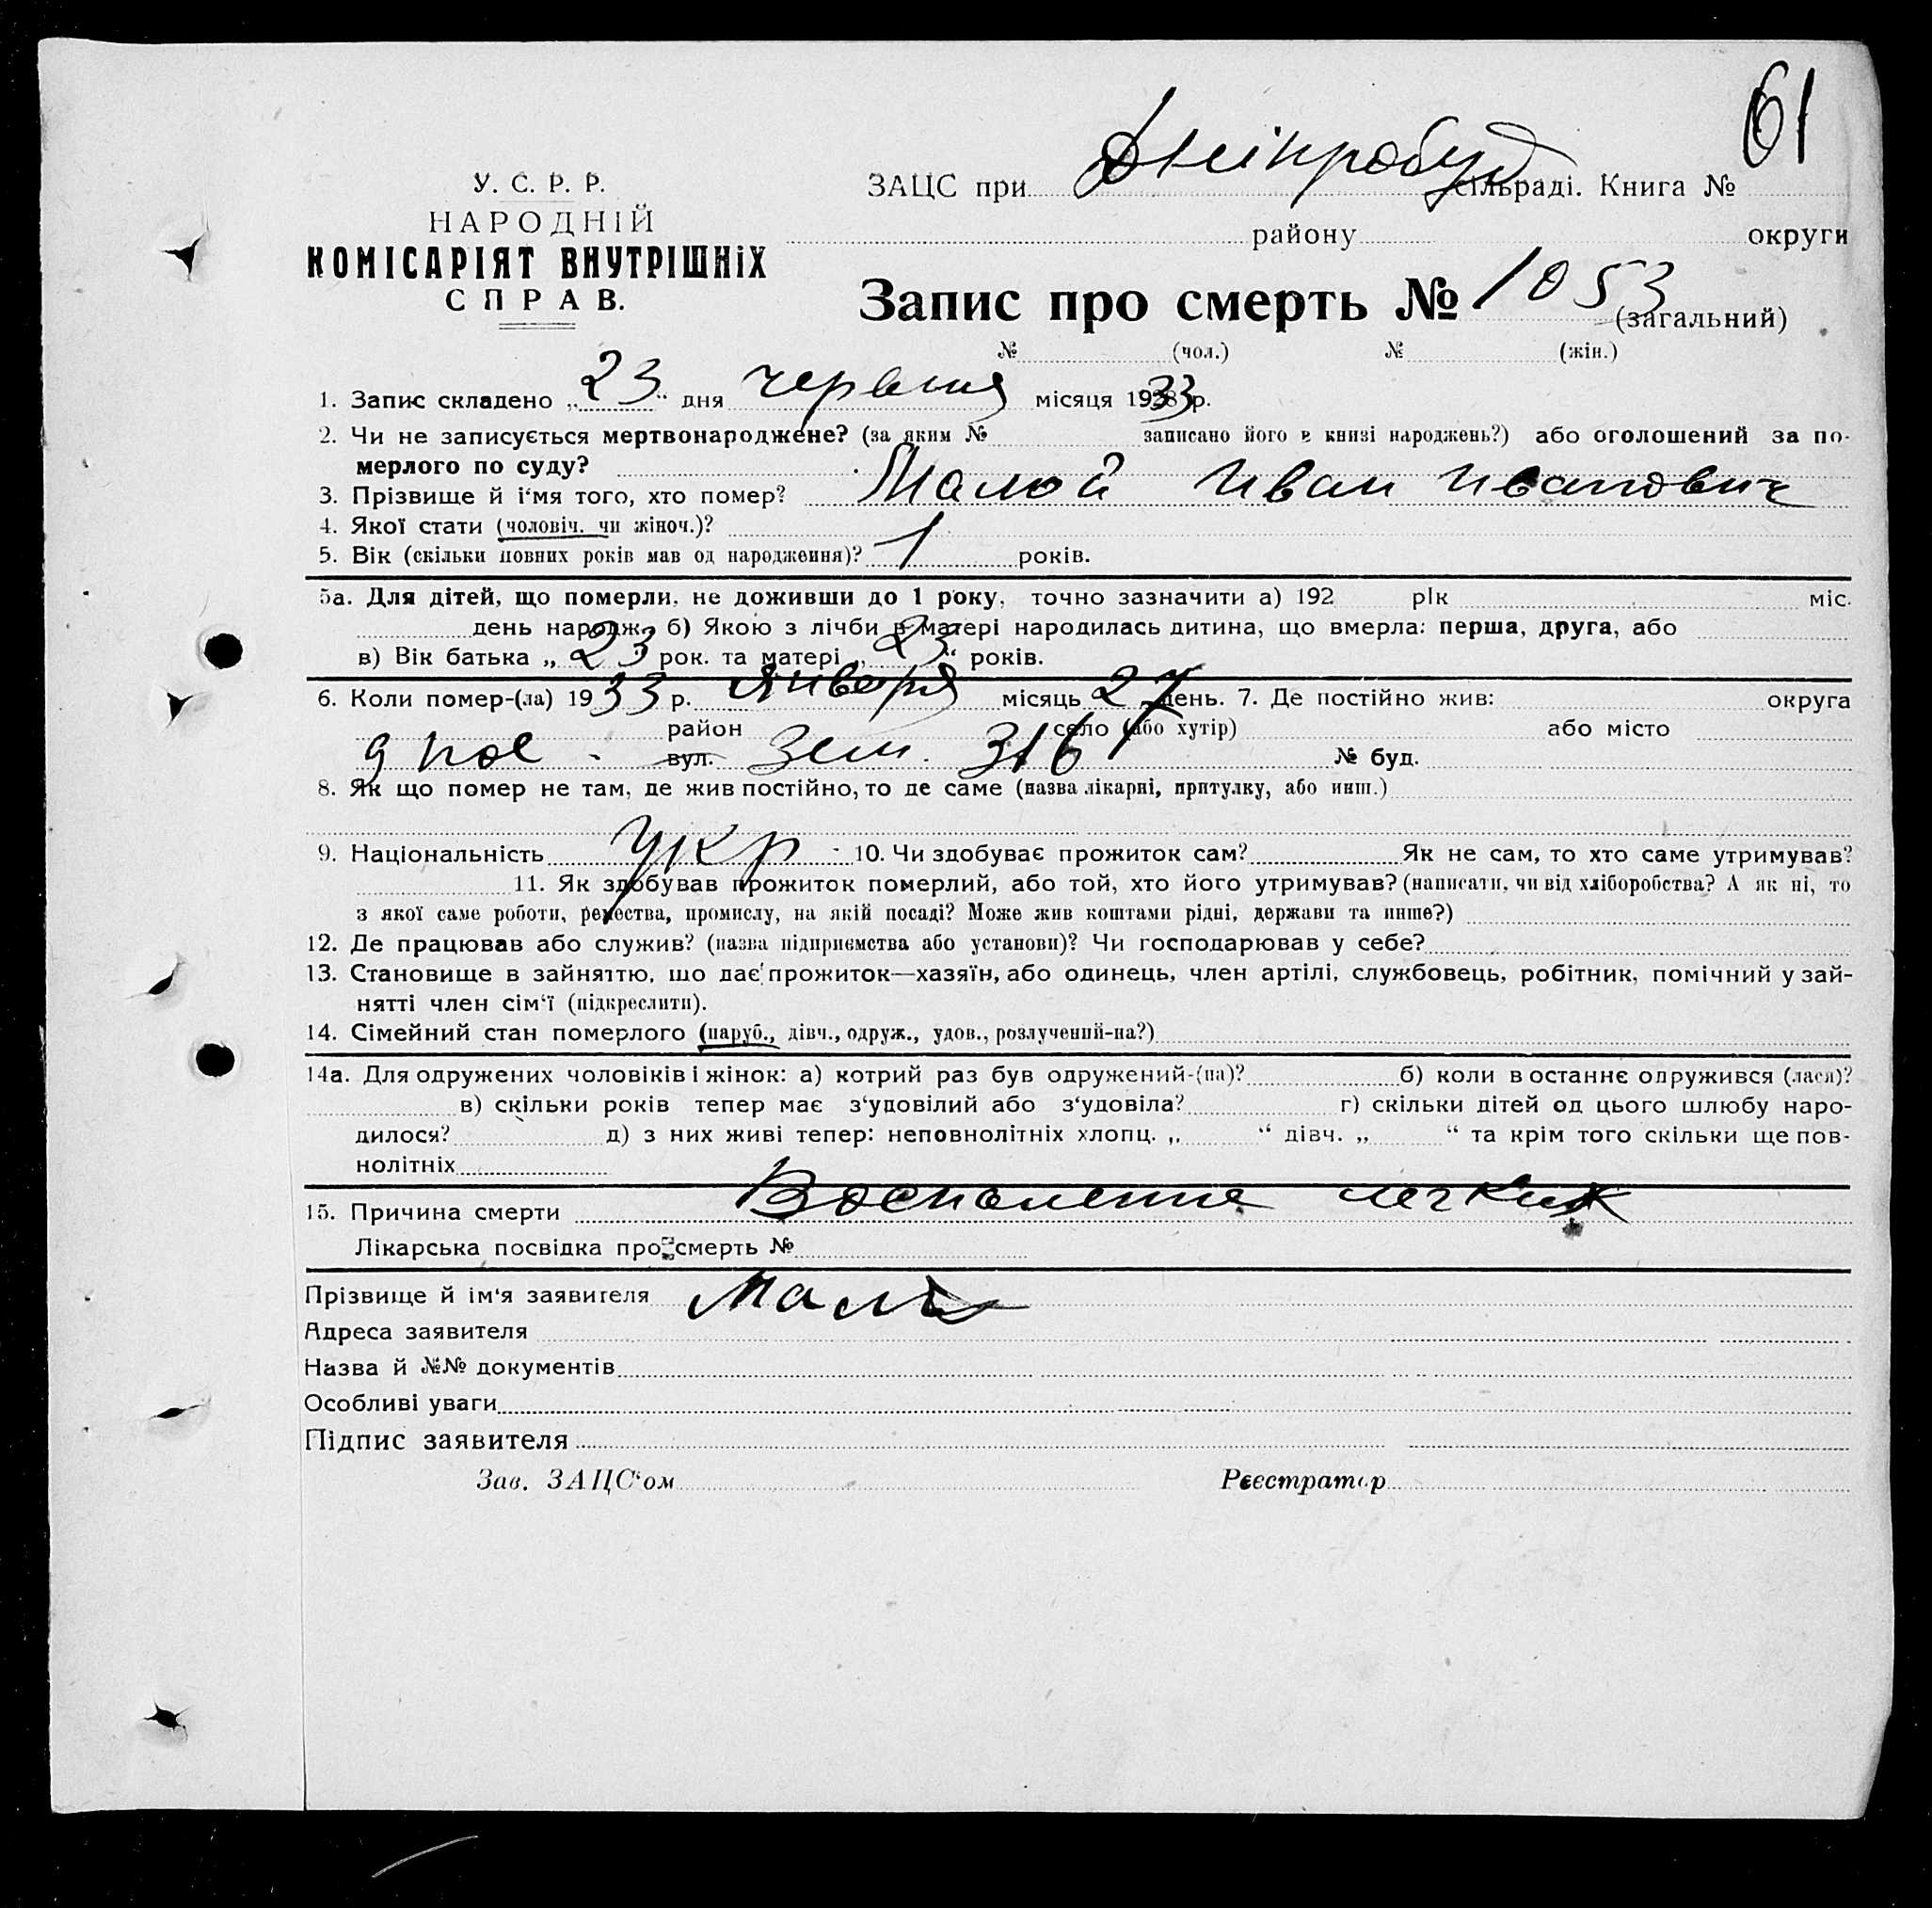 61
У. С. Р. Р.
НАРОДНІЙ
КОМІСАРІЯТ ВНУТРІШНІХ
СПРАВ.
ЗАЦС при Дніпробуд сільраді. Книга №
району округи
Запис про смерть № 1053 (загальний)
№ (чол.) № (жін.)
1. Запис складено „ 23 “ дня червня місяця 1933 р.
2. Чи не записується мертвонароджене? (за яким № записано його в книзі народжень?) або оголошений за по-
мерлого по суду?
3. Прізвище й і‘мя того, хто помер? Малой Иван Иванович
4. Якої стати (чоловіч. чи жіноч.)?
5. Вік (скільки повних років мав од народження)? 1 років.
5а. Для дітей, що померли, не доживши до 1 року, точно зазначити а) 192 рік міс.
день народж. б) Якою з лічби в матері народилась дитина, що вмерла: перша, друга, або
в) Вік батька „ 23 рок. та матері „ 23 “ років.
6. Коли помер-(ла) 1933 р. января місяць 27 день. 7. Де постійно жив: округа
район село (або хутір) або місто
9 пос. вул. зем. 316 № буд.
8. Як що помер не там, де жив постійно, то де саме (назва лікарні, притулку, або инш.)
9. Національність укр 10. Чи здобуває прожиток сам? Як не сам, то хто саме утримував?
11. Як здобував прожиток померлий, або той, хто його утримував? (написати, чи від хліборобства? А як ні, то
з якої саме роботи, ремества, промислу, на якій посаді? Може жив коштами рідні, держави та инше?)
12. Де працював або служив? (назва підприємства або установи)? Чи господарював у себе?
13. Становище в зайняттю, що дає прожиток—хазяїн, або одинець, член артілі, службовець, робітник, помічний у зай-
нятті член сім‘ї (підкреслити).
14. Сімейний стан померлого (паруб., дівч., одруж., удов., розлучений-на?)
14а. Для одружених чоловіків і жінок: а) котрий раз був одружений-(на)? б) коли в останнє одружився (лася)?
в) скільки років тепер має з‘удовілий або з‘удовіла? г) скільки дітей од цього шлюбу наро-
дилося? д) з них живі тепер: неповнолітніх хлопц. „ “ дівч. „ “ та крім того скільки ще пов-
нолітніх
15. Причина смерти Воспаление легких
Лікарська посвідка про смерть №
Прізвище й ім‘я заявителя
Адреса заявителя
Назва й №№ документів
Особливі уваги
Підпис заявителя
Зав. ЗАЦС‘ом Реєстратор